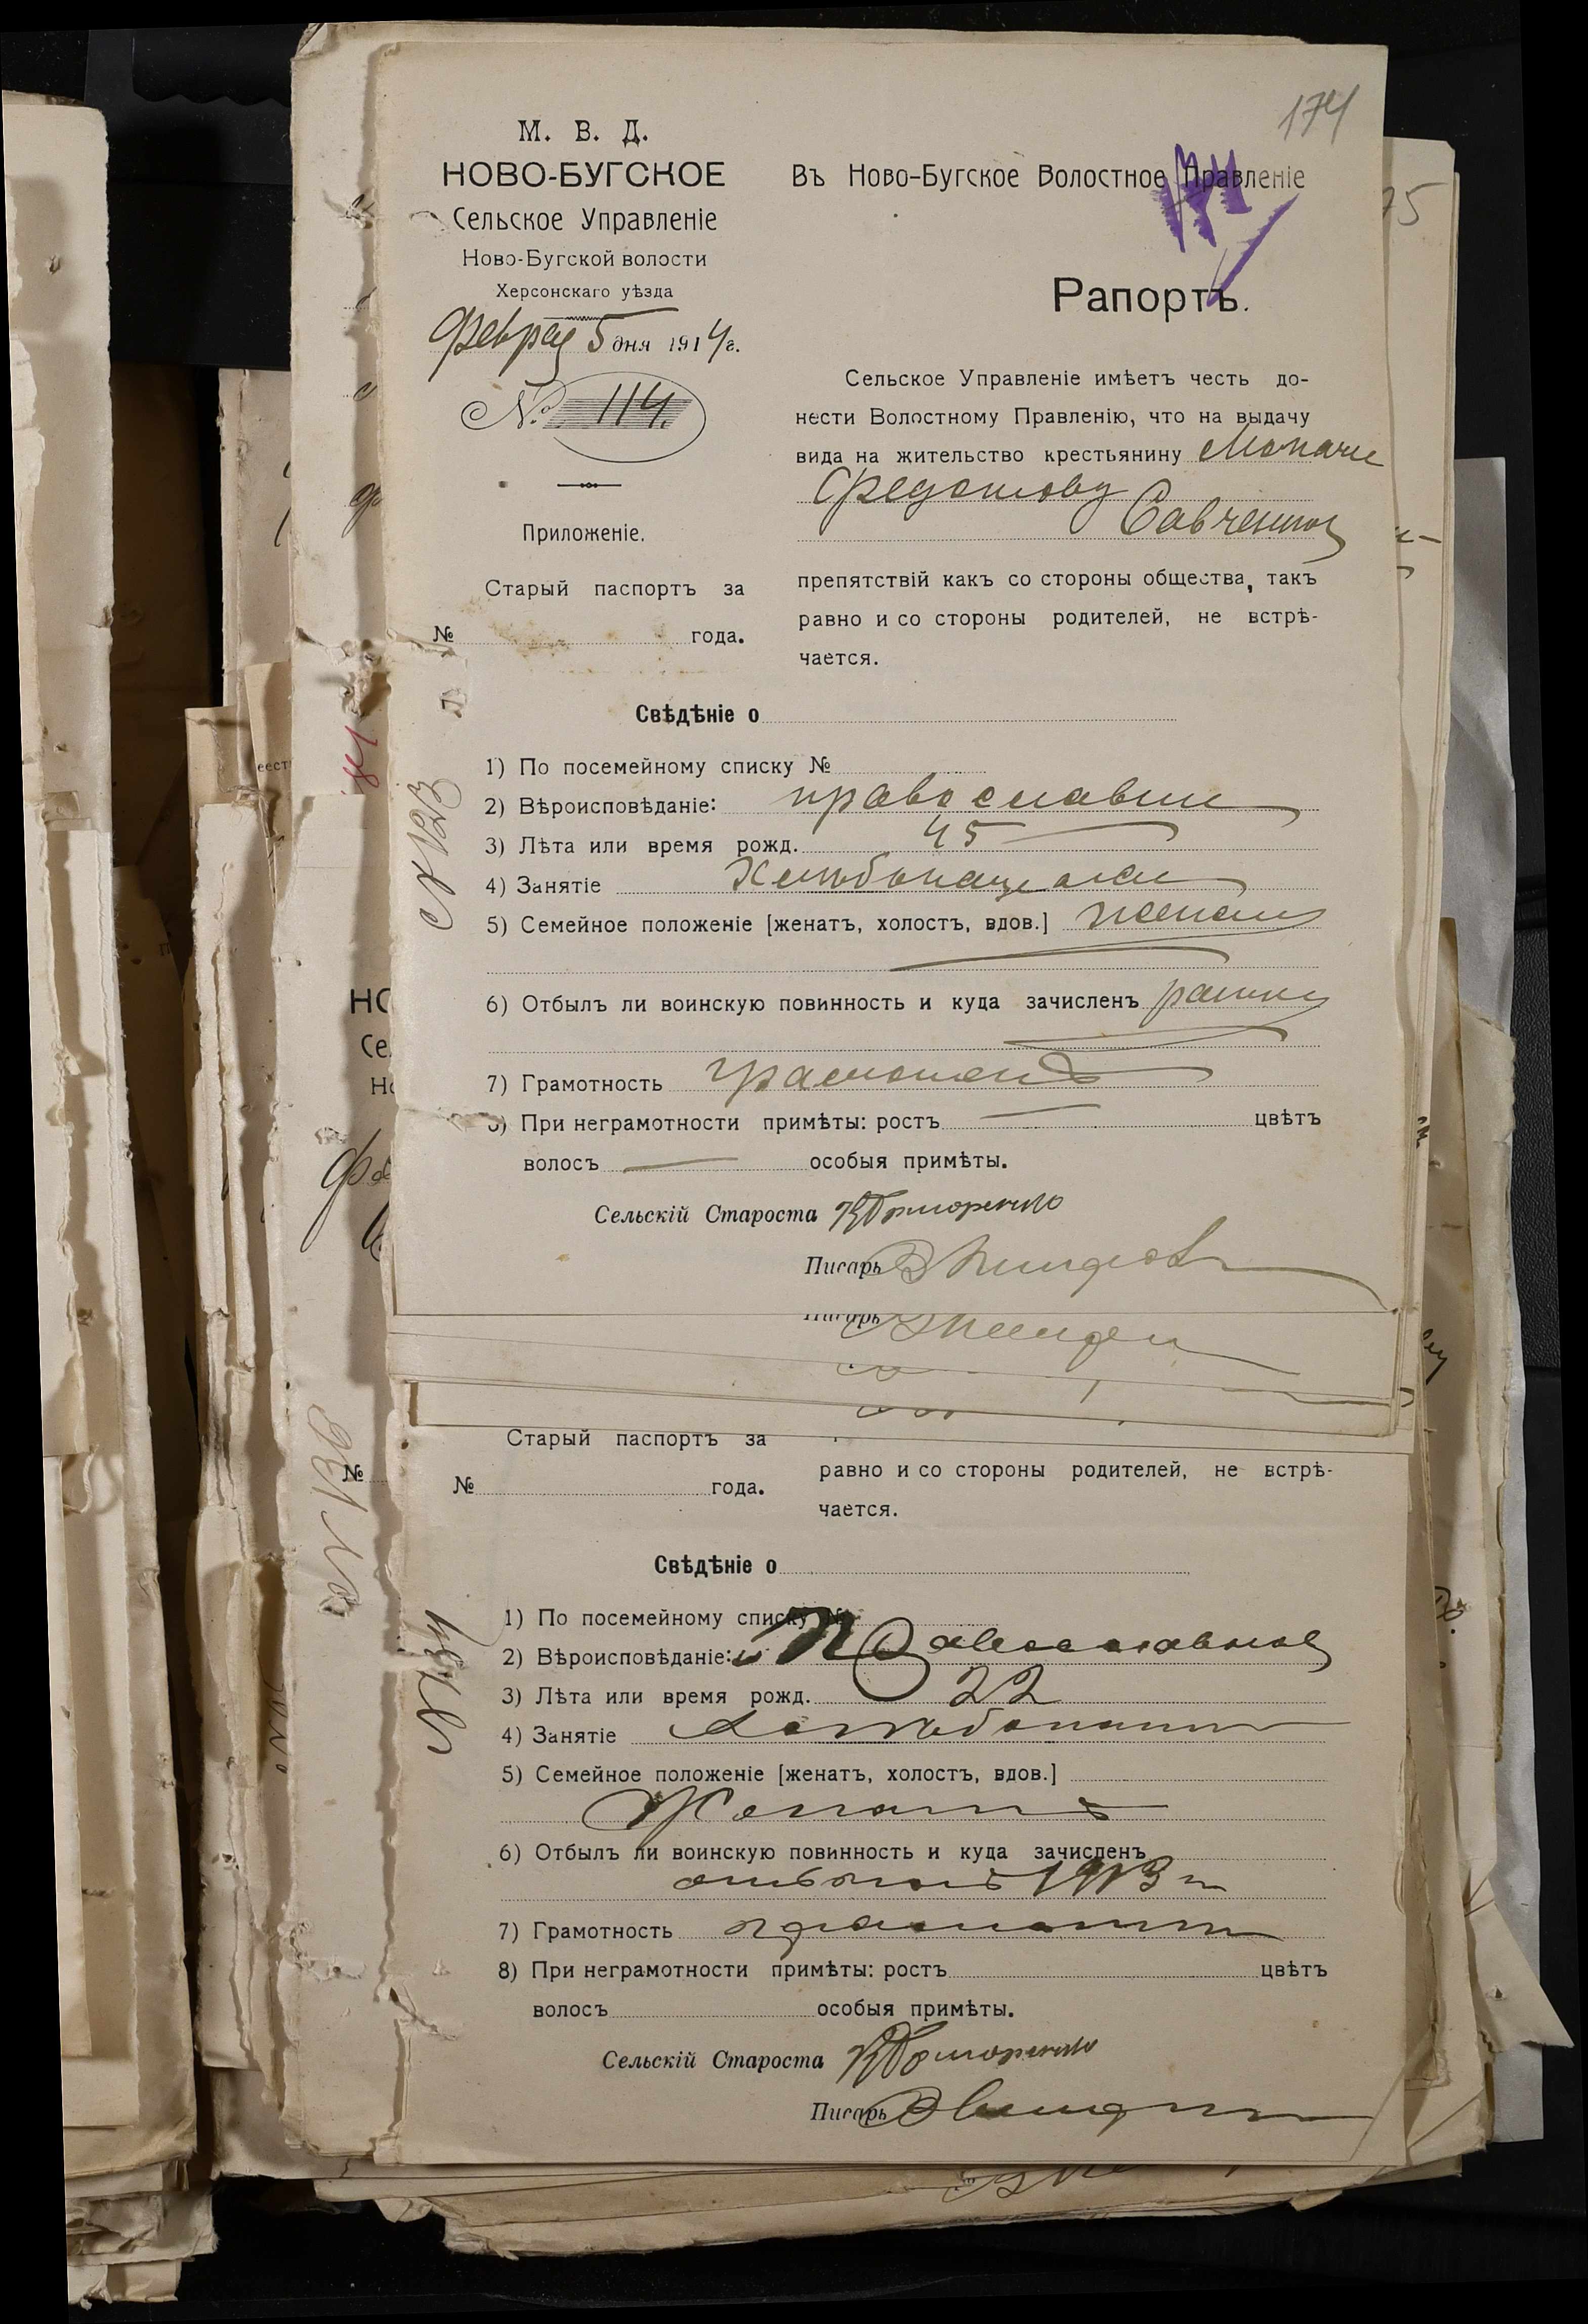 174
М. В. Д.
НОВО-БУГСКОЕ
Сельское Управленіе
Ново-Бугской волости
Херсонскаго уѣзда
Феврал 5 дня 1914 г.
№ 114.
Приложеніе.
Старый паспортъ за
№ года.
Въ Ново-Бугское Волостное Правленіе
Рапортъ.
Сельское Управленіе имѣетъ честь до-
нести Волостному Правленію, что на выдачу
вида на жительство крестьянину
Федотову
Савченко
препятствій какъ со стороны общества, такъ
равно и со стороны родителей, не встрѣ-
чается.
Свѣдѣніе о
1) По посемейному списку №
2) Вѣроисповѣданіе: православн
3) Лѣта или время рожд. 45
4) Занятіе
5) Семейное положеніе [женатъ, холостъ, вдов.] женат
6) Отбылъ ли воинскую повинность и куда зачисленъ ратник
7) Грамотность грамотенъ
8) При неграмотности примѣты: ростъ — цвѣтъ
волосъ — особыя примѣты.
Сельскій Староста
Писарь
№ 123
75
Писарь
Старый паспортъ за
№ года.
равно и со стороны родителей, не встрѣ-
чается.
Свѣдѣніе о
1) По посемейному списку №
2) Вѣроисповѣданіе: Православный
3) Лѣта или время рожд. 22
4) Занятіе
5) Семейное положеніе [женатъ, холостъ, вдов.]
Женатъ
6) Отбылъ ли воинскую повинность и куда зачисленъ
отбылъ 1913 г
7) Грамотность грамотн
8) При неграмотности примѣты: ростъ цвѣтъ
волосъ особыя примѣты.
Сельскій Староста
Писарь
НО
Се
Но
№